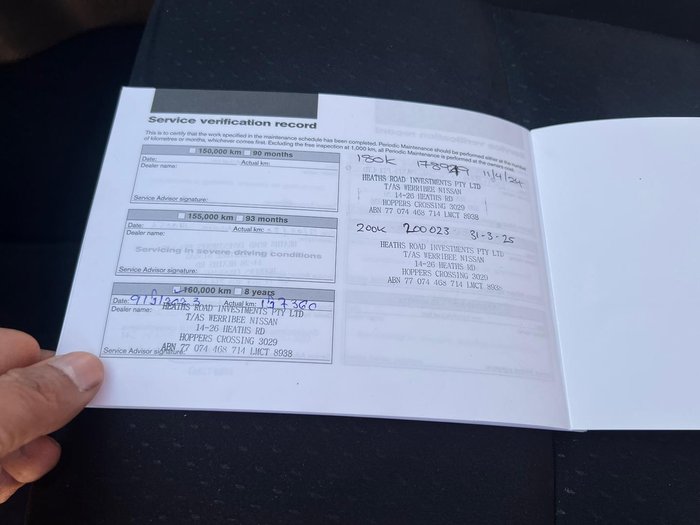 Service verification record
This is to certify that the work specified in the maintenance schedule has been completed. Periodic Maintenance should be performed either at the number
of kilometres or months, whichever comes first. Excluding the free inspection at 1,000 km, all Periodic Maintenance is performed at the owners cost.
150,000 km 90 months
Date: Actual km:
Dealer name:
Service Advisor signature:
155,000 km 93 months
Date: Actual km:
Dealer name:
Servicing in severe driving conditions
Service Advisor signature:
160,000 km 8 years
Date: 9/5/2023 Actual km: 157360
Dealer name:
HEATHS ROAD INVESTMENTS PTY LTD
T/AS WERRIBEE NISSAN
14-26 HEATHS RD
HOPPERS CROSSING 3029
Service Advisor signature:
ABN 77 074 468 714 LMCT 8938
180K 178949 11/4/24
HEATHS ROAD INVESTMENTS PTY LTD
T/AS WERRIBEE NISSAN
14-26 HEATHS RD
HOPPERS CROSSING 3029
ABN 77 074 468 714 LMCT 8938
200K 200023 31-3-25
HEATHS ROAD INVESTMENTS PTY LTD
T/AS WERRIBEE NISSAN
14-26 HEATHS RD
HOPPERS CROSSING 3029
ABN 77 074 468 714 LMCT 8938